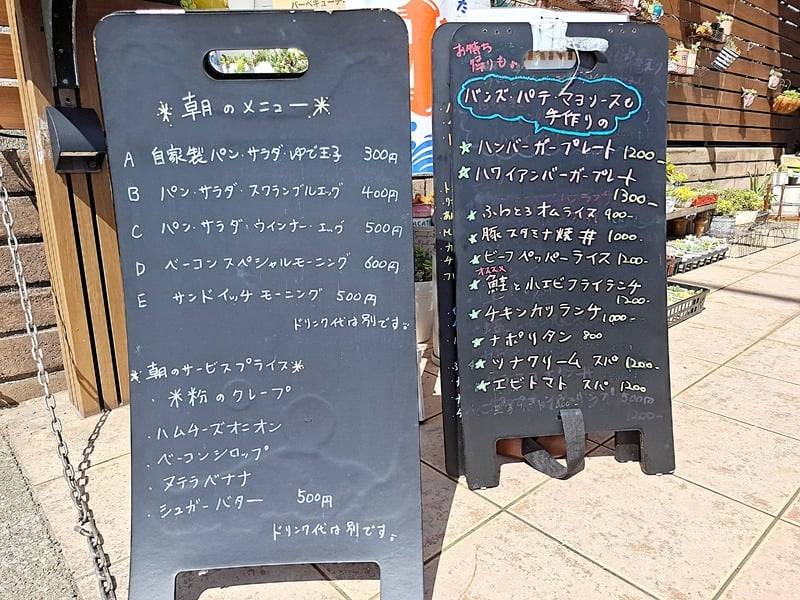 バーベキュー
✳朝のメニュー✳
A 自家製パン・サラダ・ゆで玉子 300円
B パン・サラダ・スクランブルエッグ 400円
C パン・サラダ・ウインナー・エッグ 500円
D ベーコンスペシャルモーニング 600円
E サンドイッチモーニング 500円
ドリンク代は別です。
✳朝のサービスプライス✳
・米粉のクレープ
・ハムチーズオニオン
・ベーコンシロップ
・ヌテラバナナ
・シュガーバター 500円
ドリンク代は別です。
お持ち
帰りも
バンズ・パテ・マヨソースも
手作りの
★ハンバーガープレート 1200-
★ハワイアンバーガープレート
1300-
★ふわとろオムライス 900-
★豚スタミナ焼丼 1000-
★ビーフペッパーライス 1200-
オススメ
★鮭と小エビフライランチ
1200-
★チキンカツランチ 1000-
★ナポリタン 800
★ツナクリームスパ 1200-
★エビトマトスパ 1200